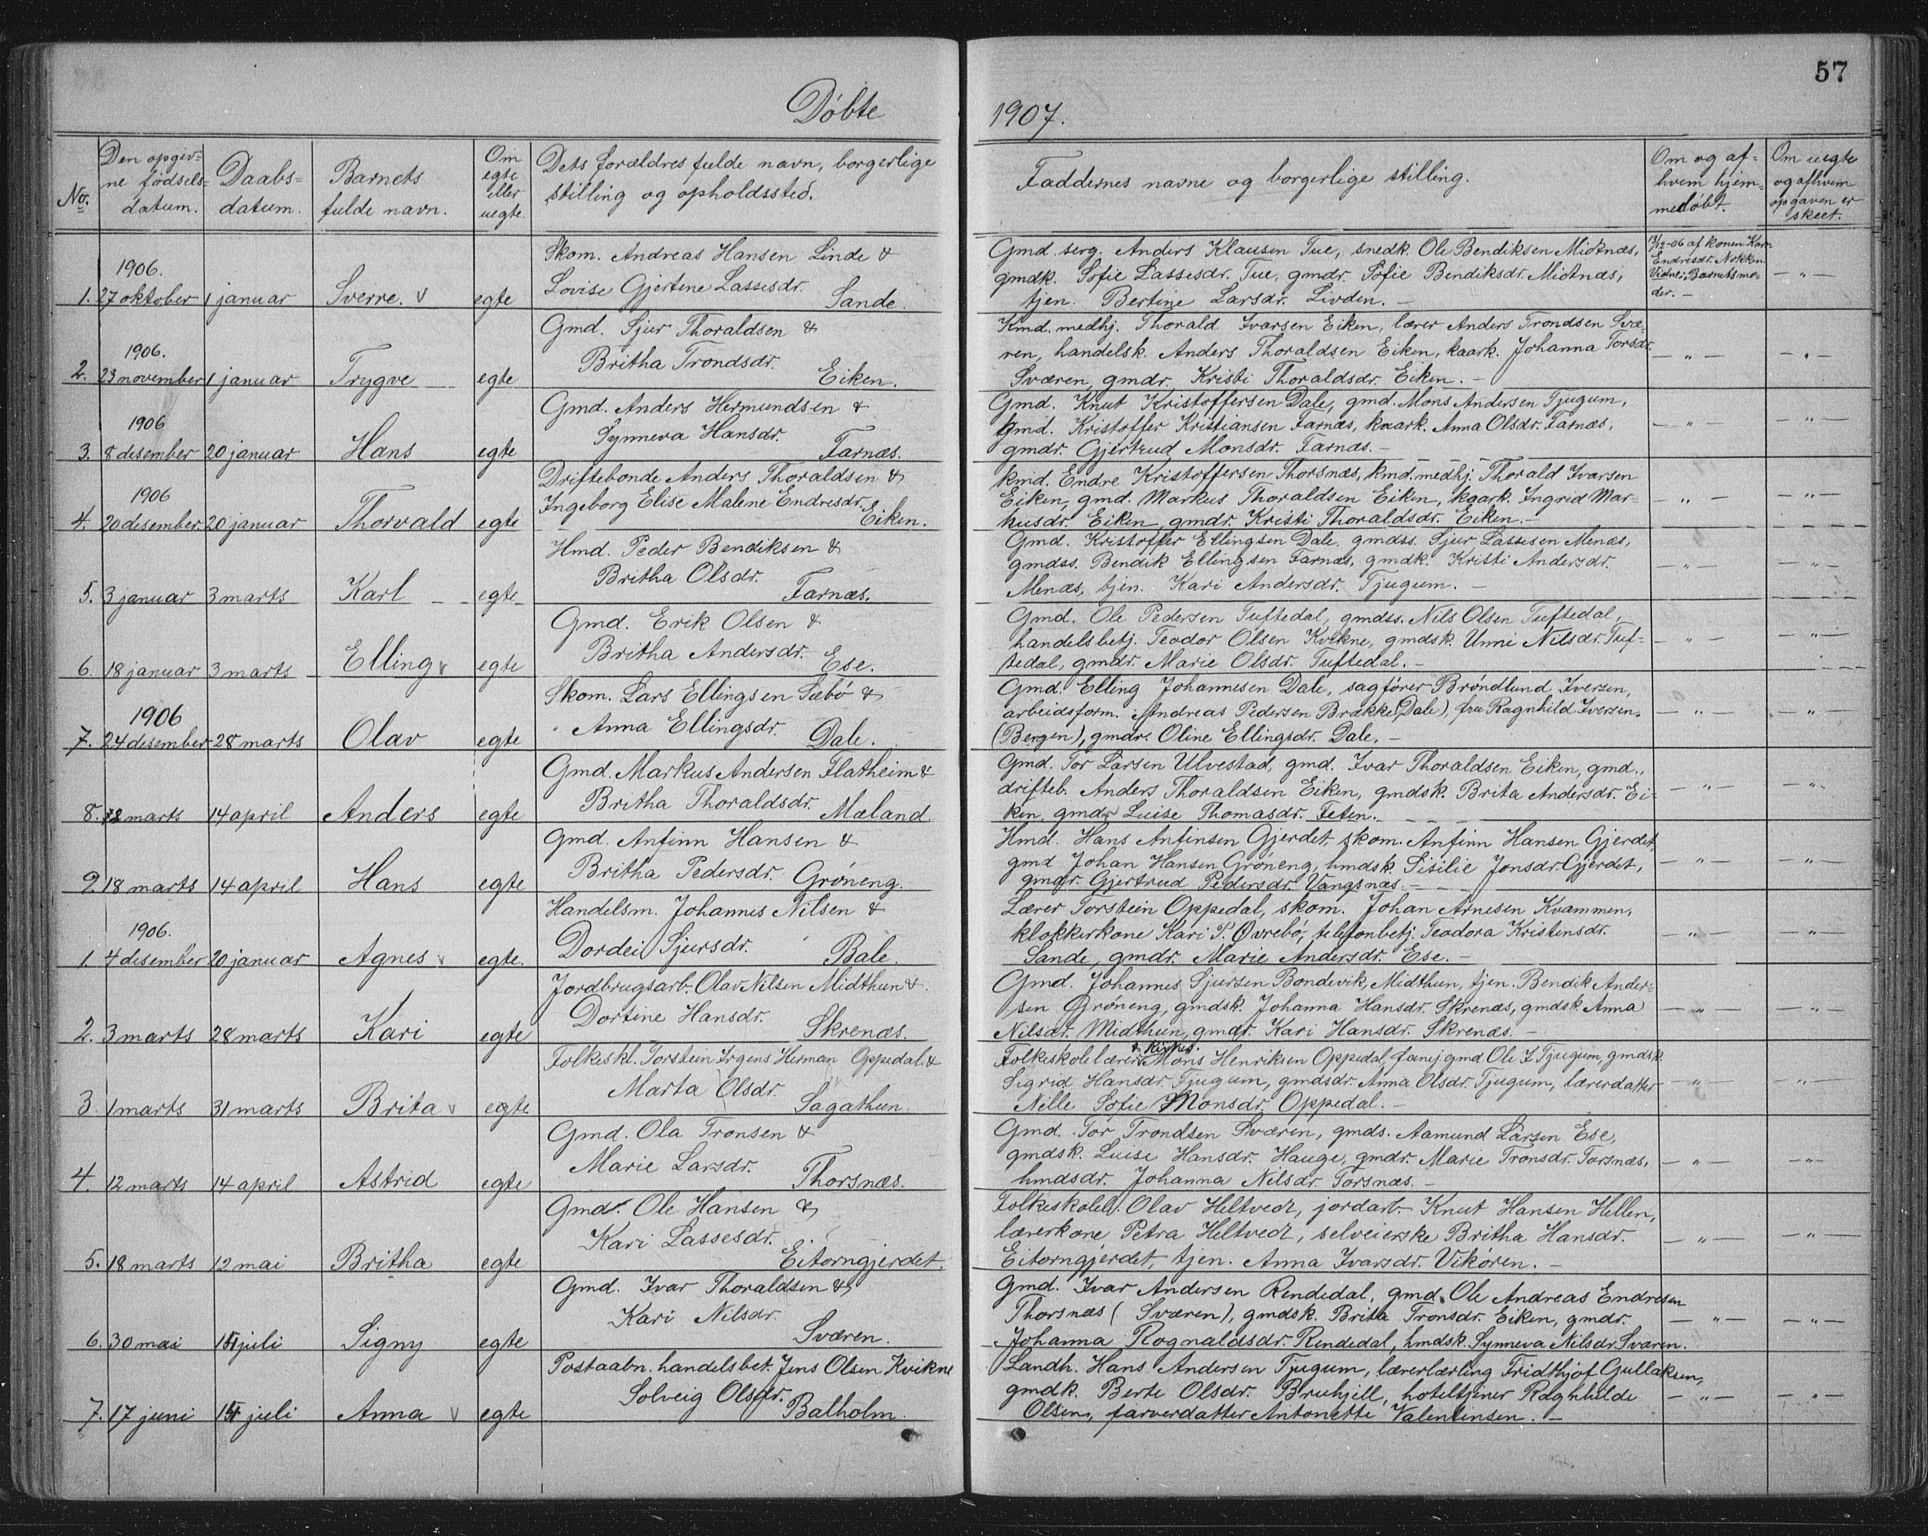 57
Døbte 1907.
No.
Den opgiv-
ne fødsels-
datum.
Daabs-
datum.
Barnets
fulde navn.
Om
egte
eller
uegte.
Dets forældres fulde navn, borgerlige
stilling og opholdssted.
Faddernes navne og borgerlige stilling.
Om og af-
hvem hjem-
medøbt.
Om uegte
og af hvem
opgaven er
skeet.
1906.
1. 27 oktober 1 januar Sverre. egte
Skom. Andreas Hansen Linde &
Lovise Gjertine Lassesdr.
Sande.
Gmd. serg. Anders Klausen Tue, snedk. Ole Bendiksen Midtnæs,
gmdk. Sofie Lassesdr. Tue, gmdr. Sofie Bendiksdr. Midtnæs,
tjen. Bertine Larsdr. Livden. –
-06 af konen Kari
Endresdr. Nokken
Vidne: Barnets mo-
der. –
– " –
1906.
2. 23 november 1 januar Trygve egte
Gmd. Sjur Thoraldsen &
Britha Trondsdr.
Eiken.
Kmd. medhj. Thorald Ivarsen Eiken, lærer Anders Trondsen Svæ-
ren, handelsk. Anders Thoraldsen Eiken, kaark. Johanna Torsdr.
Sværen, gmdr. Kristi Thoraldsdr. Eiken. –
– " – – " –
1906
3. 8 desember 20 januar Hans egte
Gmd. Anders Hermundsen &
Synneva Hansdr.
Farnæs.
Gmd. Knut Kristoffersen Dale, gmd. Mons Andersen Tjugum,
gmd. Kristoffer Kristiansen Farnæs, kaark. Anna Olsdr. Farnæs,
gmdr. Gjertrud Monsdr. Farnæs. –
– " – – " –
1906
4. 20 desember 20 januar Thorvald egte
Driftebonde Anders Thoraldsen &
Ingeborg Elise Malene Endresdr.
Eiken.
Kmd. Endre Kristoffersen Thorsnæs, kmd. medhj. Thorald Ivarsen
Eiken, gmd. Markus Thoraldsen Eiken, kaark. Ingrid Mar-
kusdr. Eiken, gmdr. Kristi Thoraldsdr. Eiken. –
– " – – " –
5. 3 januar 3 marts Karl egte
Hmd. Peder Bendiksen &
Britha Olsdr.
Farnæs.
Gmd. Kristoffer Ellingsen Dale, gmdss. Sjur Lassesen Menæs,
gmdss. Bendik Ellingsen Farnæs, gmdk. Kristi Andersdr.
Menæs, tjen. Kari Andersdr. Tjugum. –
– " – – " –
6. 18 januar 3 marts Elling egte
Gmd. Erik Olsen &
Britha Andersdr.
Ese.
Gmd. Ole Pedersen Tuftedal, gmdss. Nils Olsen Tuftedal,
handelsbetj. Teodor Olsen Kvikne, gmdsk. Unni Nilsdr. Tuf-
tedal, gmdr. Marie Olsdr. Tuftedal. –
– " – – " –
1906
7. 24 desember 28 marts Olav egte
Skom. Lars Ellingsen Sæbø &
Anna Ellingsdr.
Dale.
Gmd. Elling Johannesen Dale, sagfører Brøndlund Iversen,
arbeidsform. Andreas Pedersen Brække (Dale), fru Ragnhild Iversen,
(Bergen), gmdr. Oline Ellingsdr. Dale. –
– " – – " –
8. marts 14 april Anders egte
Gmd. Markus Andersen Flatheim &
Britha Thoraldsdr.
Mæland
Gmd. Tor Larsen Ulvestad, gmd. Ivar Thoraldsen Eiken, gmd.,
drifteb. Anders Thoraldsen Eiken, gmdsk. Brita Andersdr. Ei-
ken, gmdr. Luise Thomasdr. Feten.
– " – – " –
9 18 marts 14 april Hans egte
Gmd. Anfinn Hansen &
Britha Pedersdr.
Grøneng.
Hmd. Hans Anfinsen Gjerdet, skom. Anfinn Hansen Gjerdet,
gmd Johan Hansen Grøneng, hmdsk. Sisilie Jonsdr. Gjerdet,
gmdr. Gjertrud Pedersdr. Vangsnæs. –
– " – – " –
1906.
1. 4 desember 20 januar Agnes egte.
Handelsm. Johannes Nilsen &
Dordei Sjursdr.
Bale.
Lærer Torstein Oppedal, skom. Johan Arnesen Kvammen,
klokkerkone Kari S. Øvrebø, telefonbetj. Teodora Kristensdr.
Sande, gmdr. Marie Andersdr. Ese. –
– " – – " –
2. 3 marts 28 marts Kari egte
Jordbrugsarb. Olav Nilsen Midthun &
Dortine Hansdr.
Skrenæs.
Gmd. Johannes Sjursen Bondevik, Midthun, tjen. Bendik Ander-
sen Grøneng, gmdsk. Johanna Hansdr. Skrenæs, gmdsk Anna
Nilsdr. Midthun, gmdr. Kari Hansdr. Skrenæs. –
– " – – " –
3. 1 marts 31 marts Brita egte
Folkeskl. Torstein Irgens Herman Oppedal &
Marta Olsdr.
Sagathun.
Folkeskolelærer Mons Henriksen Oppedal, gmd Ole J Tjugum, gmdsk
Sigrid Hansdr. Tjugum, gmdsdr. Anna Olsdr. Tjugum, lærerdatter
Nille Sofie Monsdr. Oppedal. –
– " – – " –
4. 12 marts 14 april Astrid egte
Gmd. Ola Tronsen &
Marie Larsdr.
Thorsnæs.
Gmd. Tor Trondsen Sværen, gmds. Aamund Larsen Ese,
gmdsk. Luise Hansdr. Hauge, gmdr. Marie Tronsdr. Torsnæs,
hmdsdr. Johanna Nilsdr. Torsnæs. –
– " – – " –
5. 18 marts 12 mai Britha egte
Gmd. Ole Hansen &
Kari Lassesdr.
Eitorngjerdet.
Folkeskolel. Olav Heltvedt, jordarb. Knut Hansen Hellen,
lærerkone Petra Heltvedt, selveierske Britha Hansdr.
Eitorngjerdet, tjen. Anna Ivarsdr. Vikøren. –
– " – – " –
6. 30 mai 14 juli Signy egte
Gmd. Ivar Thoraldsen &
Kari Nilsdr.
Sværen.
Gmd. Ivar Andersen Rendedal, gmd. Ole Andreas Endresen
Thorsnæs (Sværen), gmdsk. Brita Tronsdr. Eiken, gmdr.
Johanna Rognaldsdr. Rendedal, hmdsk. Synneva Nilsdr. Sværen.
– " – – " –
7. 17 juni 14 juli Anna egte
Postaabn. handelsbet. Jens Olsen Kvikne
Solveig Olsdr.
Balholm.
Landh. Hans Andersen Tjugum, lærerlærling Fridthjof Gullaksen,
gmdk. Berte Olsdr. Bruhjell, hoteltjener Ragnhilde
Olsen, farverdatter Antonette Valentinsen. –
– " – – " –